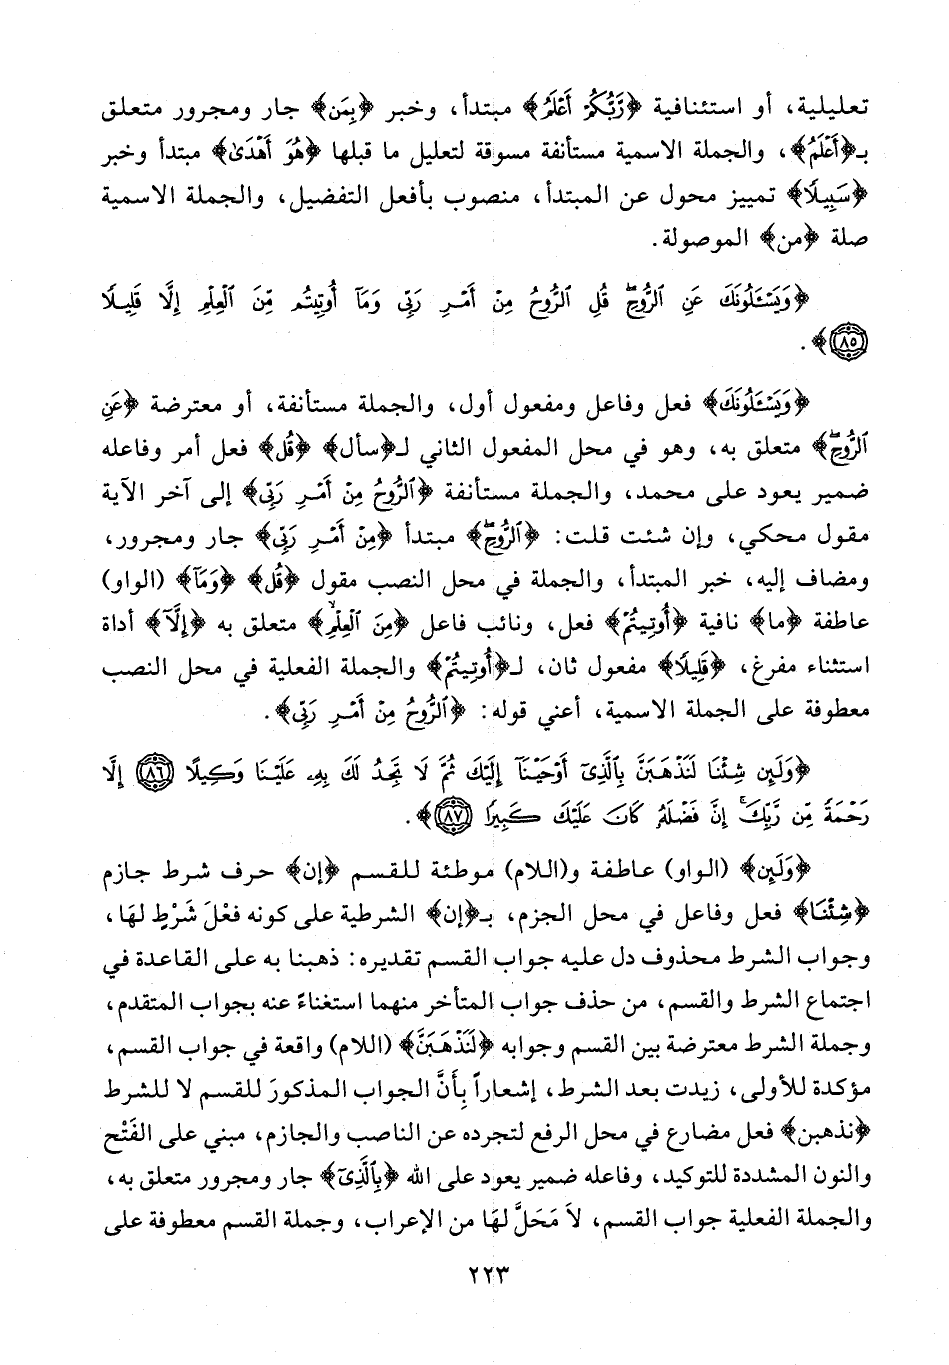 تعليلية، أو استئنافية ﴿رَّبُّكُمْ أَعْلَمُ﴾ مبتدأ، وخبر ﴿بِمَن﴾ جار ومجرور متعلق
بـ﴿أَعْلَمُ﴾، والجملة الاسمية مستأنفة مسوقة لتعليل ما قبلها ﴿هُوَ أَهْدَىٰ﴾ مبتدأ وخبر
﴿سَبِيلًا﴾ تمييز محول عن المبتدأ، منصوب بأفعل التفضيل، والجملة الاسمية
صلة ﴿من﴾ الموصولة.
﴿وَيَسْـَٔلُونَكَ عَنِ ٱلرُّوحِ ۖ قُلِ ٱلرُّوحُ مِنْ أَمْرِ رَبِّى وَمَآ أُوتِيتُم مِّنَ ٱلْعِلْمِ إِلَّا قَلِيلًا
٨٥﴾.
﴿وَيَسْـَٔلُونَكَ﴾ فعل وفاعل ومفعول أول، والجملة مستأنفة، أو معترضة ﴿عَنِ
ٱلرُّوحِ ۖ﴾ متعلق به، وهو في محل المفعول الثاني لـ﴿سأل﴾ ﴿قُل﴾ فعل أمر وفاعله
ضمير يعود على محمد، والجملة مستأنفة ﴿ٱلرُّوحُ مِنْ أَمْرِ رَبِّى﴾ إلى آخر الآية
مقول محكي، وإن شئت قلت: ﴿ٱلرُّوحِ ۖ﴾ مبتدأ ﴿مِنْ أَمْرِ رَبِّى﴾ جار ومجرور،
ومضاف إليه، خبر المبتدأ، والجملة في محل النصب مقول ﴿قُل﴾ ﴿وَمَآ﴾ (الواو)
عاطفة ﴿ما﴾ نافية ﴿أُوتِيتُمْ﴾ فعل، ونائب فاعل ﴿مِنَ ٱلْعِلْمِ ۙ﴾ متعلق به ﴿إِلَّآ﴾ أداة
استثناء مفرغ، ﴿قَلِيلًا﴾ مفعول ثان، لـ﴿أُوتِيتُمْ﴾ والجملة الفعلية في محل النصب
معطوفة على الجملة الاسمية، أعني قوله: ﴿ٱلرُّوحُ مِنْ أَمْرِ رَبِّى﴾.
﴿وَلَئِن شِئْنَا لَنَذْهَبَنَّ بِٱلَّذِىٓ أَوْحَيْنَآ إِلَيْكَ ثُمَّ لَا تَجِدُ لَكَ بِهِۦ عَلَيْنَا وَكِيلًا ٨٦ إِلَّا
رَحْمَةً مِّن رَّبِّكَ ۚ إِنَّ فَضْلَهُۥ كَانَ عَلَيْكَ كَبِيرًا ٨٧﴾.
﴿وَلَئِن﴾ (الواو) عاطفة و(اللام) موطئة للقسم ﴿إن﴾ حرف شرط جازم
﴿شِئْنَا﴾ فعل وفاعل في محل الجزم، بـ﴿إن﴾ الشرطية على كونه فعْلَ شَرْطٍ لهَا،
وجواب الشرط محذوف دل عليه جواب القسم تقديره: ذهبنا به على القاعدة في
اجتماع الشرط والقسم، من حذف جواب المتأخر منهما استغناءً عنه بجواب المتقدم،
وجملة الشرط معترضة بين القسم وجوابه ﴿لَنَذْهَبَنَّ﴾ (اللام) واقعة في جواب القسم،
مؤكدة للأولى، زيدت بعد الشرط، إشعاراً بِأَنَّ الجواب المذكورَ للقسم لا للشرط
﴿نذهبن﴾ فعل مضارع في محل الرفع لتجرده عن الناصب والجازم، مبني على الفَتْح
والنون المشددة للتوكيد، وفاعله ضمير يعود على الله ﴿بِٱلَّذِىٓ﴾ جار ومجرور متعلق به،
والجملة الفعلية جواب القسم، لاَ مَحَلَّ لهَا من الإعراب، وجملة القسم معطوفة على
٢٢٣